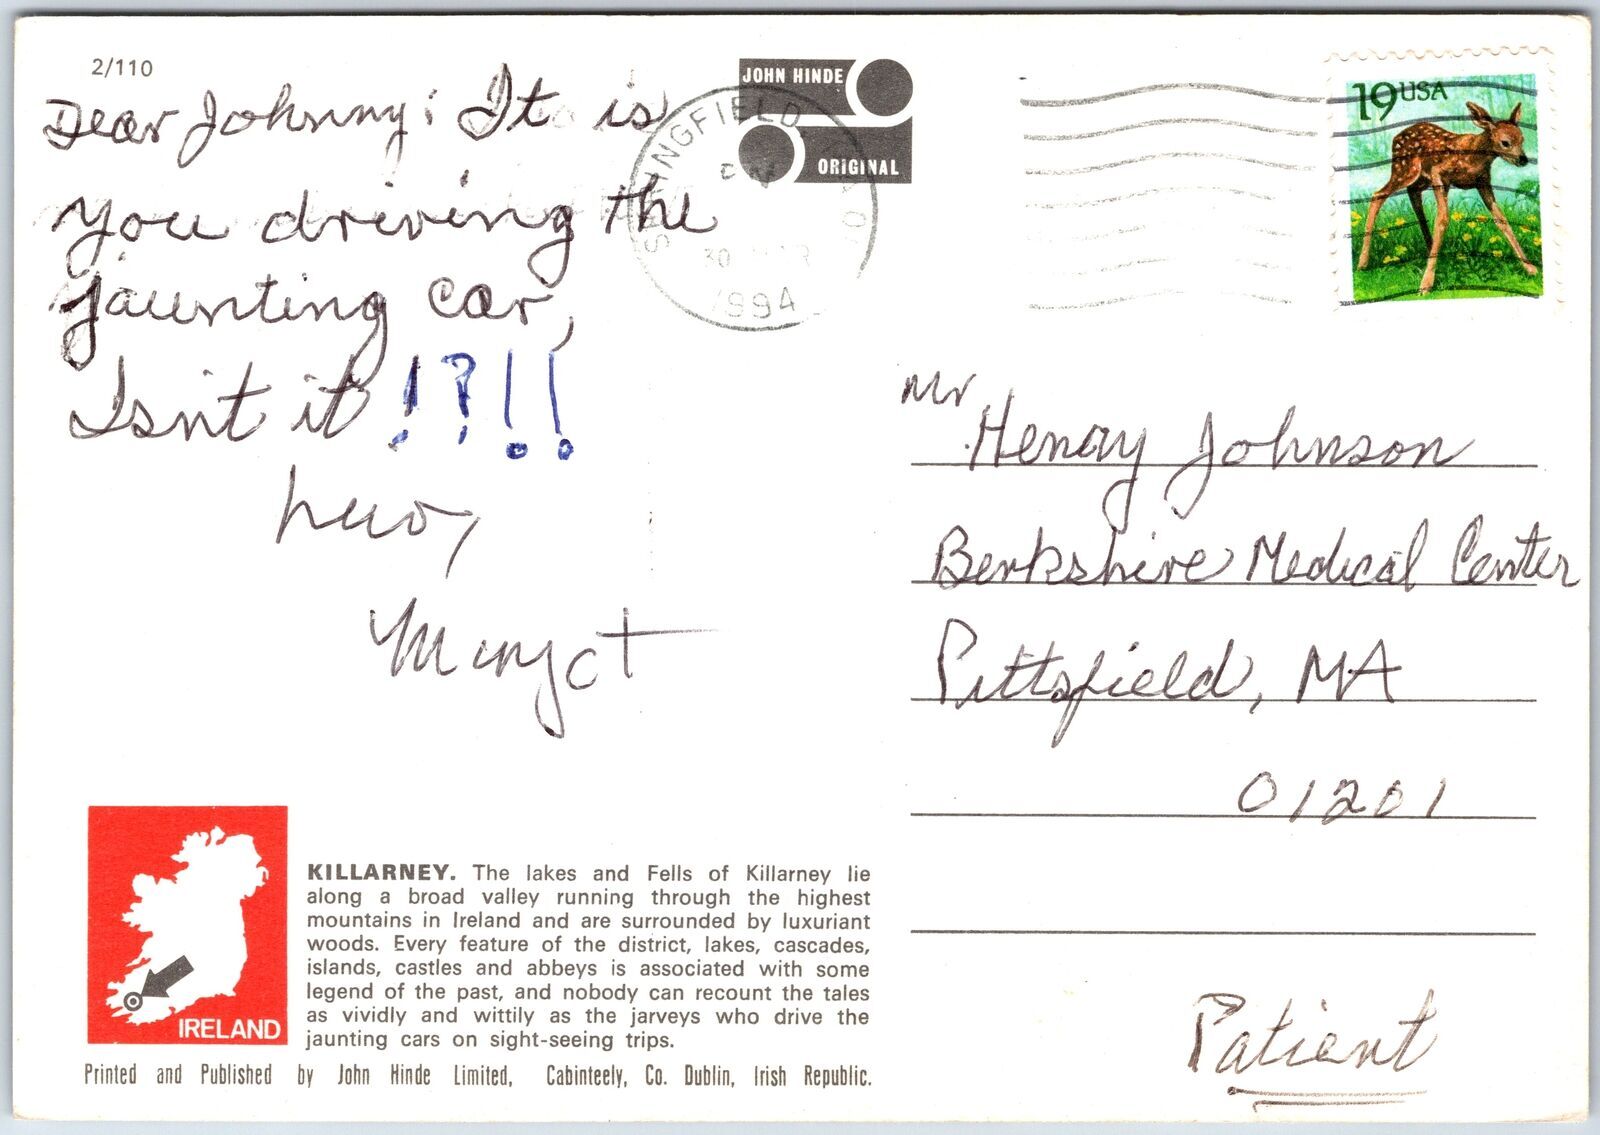 2/110
Dear Johnny: It is
you driving the
jaunting car,
Isn't it !?!!
Love,
Margot
JOHN HINDE
ORIGINAL
SPRINGFIELD
PM
30
1994
19 USA
Mr
Henry Johnson
Berkshire Medical Center
Pittsfield, MA
01201
Patient
IRELAND
KILLARNEY. The lakes and Fells of Killarney lie
along a broad valley running through the highest
mountains in Ireland and are surrounded by luxuriant
woods. Every feature of the district, lakes, cascades,
islands, castles and abbeys is associated with some
legend of the past, and nobody can recount the tales
as vividly and wittily as the jarveys who drive the
jaunting cars on sight-seeing trips.
Printed and Published by John Hinde Limited, Cabinteely, Co. Dublin, Irish Republic.